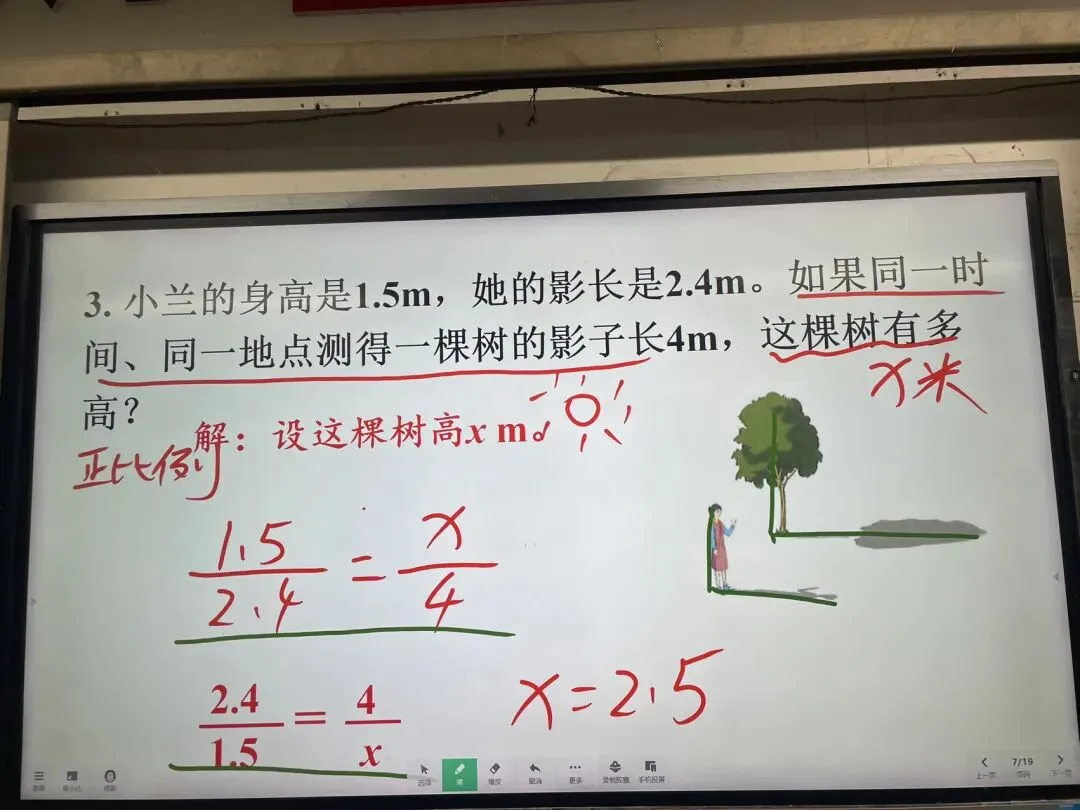 3. 小兰的身高是1.5m，她的影长是2.4m。如果同一时
间、同一地点测得一棵树的影子长4m，这棵树有多
高？
x米
解：设这棵树高x m。
正比例
1.5/2.4 = x/4
2.4/1.5 = 4/x
x=2.5
选择 笔 橡皮 撤消 更多 录制胶囊 手机投屏
上一页 7/19 页码 下一页